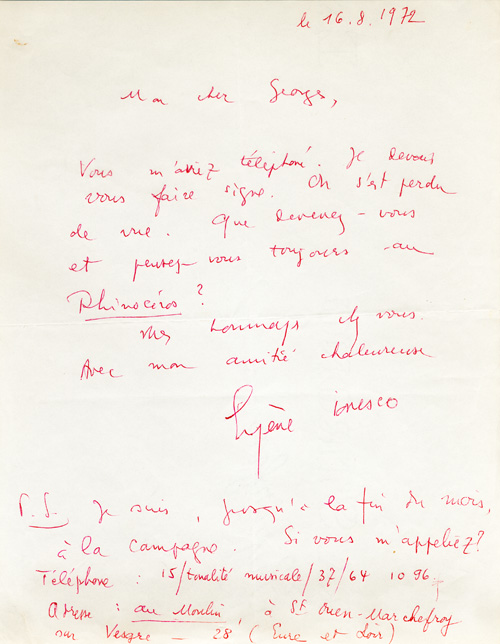 le 16.8.1972
Mon cher Georges,
Vous m'aviez téléphoné. Je devais
vous faire signe. On s'est perdu
de vue. Que devenez-vous
et pensez-vous toujours au
Rhinocéros ?
Mes hommages chez vous.
Avec mon amitié chaleureuse
Eugène Ionesco
P.S. Je suis, jusqu'à la fin du mois,
à la campagne. Si vous m'appeliez?
Téléphone : 15/tonalité musicale/37/64 10 96
Adresse : au Moulin, à St Ouen-Marchefroy
sur Vesgre - 28 (Eure et Loir)